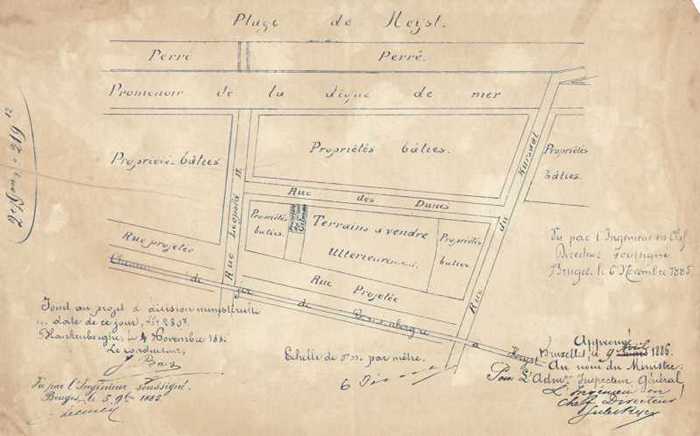 Plage de Heyst.
Perré
Perré.
Promenoir de la digue de mer
Propriétés bâties
Propriétés bâties.
Propriétés
bâties.
Rue Leopold II.
Rue des Dunes
Rue du Kursaal
Propriétés
bâties
Terrains à vendre
Ulterieurement.
Propriétés
bâties
Rue projetée
Rue Projetée
Chemin de fer de à Heyst
Vu par l'Ingénieur en Chef
Directeur soussigné
Bruges, le 6 Décembre 1885
Joint au projet à division ministérielle
date de ce jour,
Blankenberghe, le 4 Novembre 188
Le conducteur,
Echelle de par mètre.
Vu par l'Ingénieur soussigné.
Bruges, le 5 9bre 1885
Approuvé
Bruxelles le 9 Avril 1886.
Au nom du Ministre:
Pour L'Admr. Inspecteur Général
L'Ingénieur en
Chef Directeur